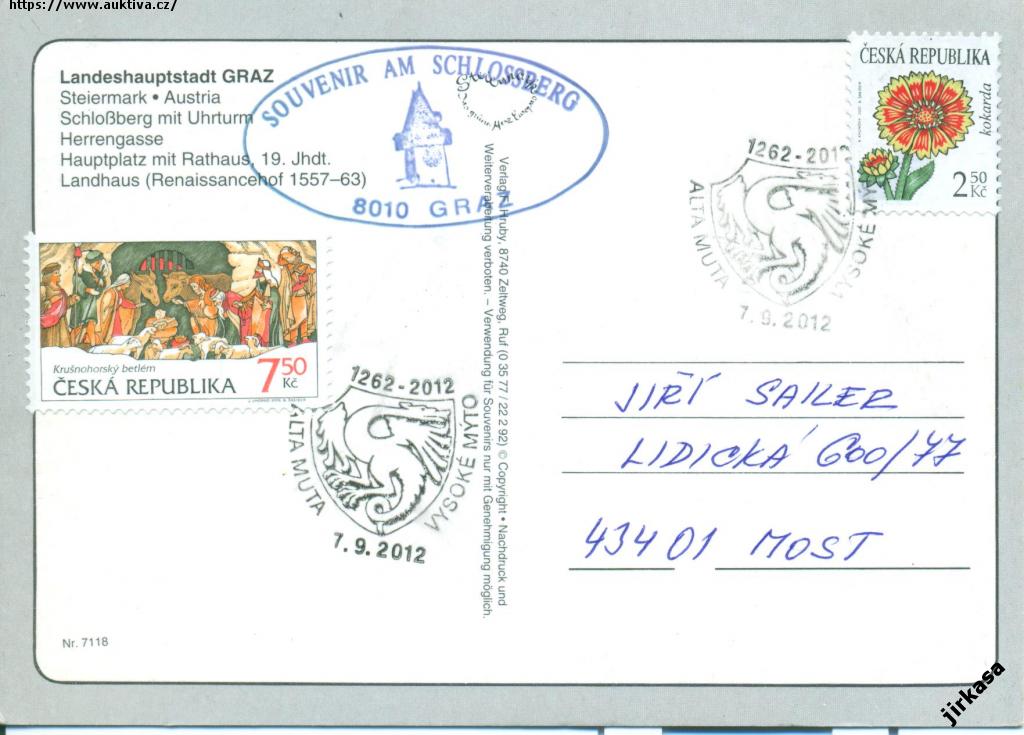 https://www.auktiva.cz/
Landeshauptstadt GRAZ
Steiermark • Austria
Schloßberg mit Uhrturm
Herrengasse
Hauptplatz mit Rathaus, 19. Jhdt.
Landhaus (Renaissancehof 1557–63)
SOUVENIR AM SCHLOSSBERG
8010 GRAZ
ČESKÁ REPUBLIKA
kokarda
2 50
Kč
1262-2012
ALTA MUTA
VYSOKÉ MÝTO
7.9.2012
Krušnohorský betlém
ČESKÁ REPUBLIKA
7 50
Kč
1262-2012
ALTA MUTA
VYSOKÉ MÝTO
7.9.2012
Hruby, 8740 Zeltweg, Ruf (0 35 77 / 22 2 92) © Copyright • Nachdruck und
Weiterverarbeitung verboten. – Verwendung für Souvenirs nur mit Genehmigung möglich.
JIŘÍ SAILER
LIDICKÁ 600/77
43401 MOST
Nr. 7118
jirkasa